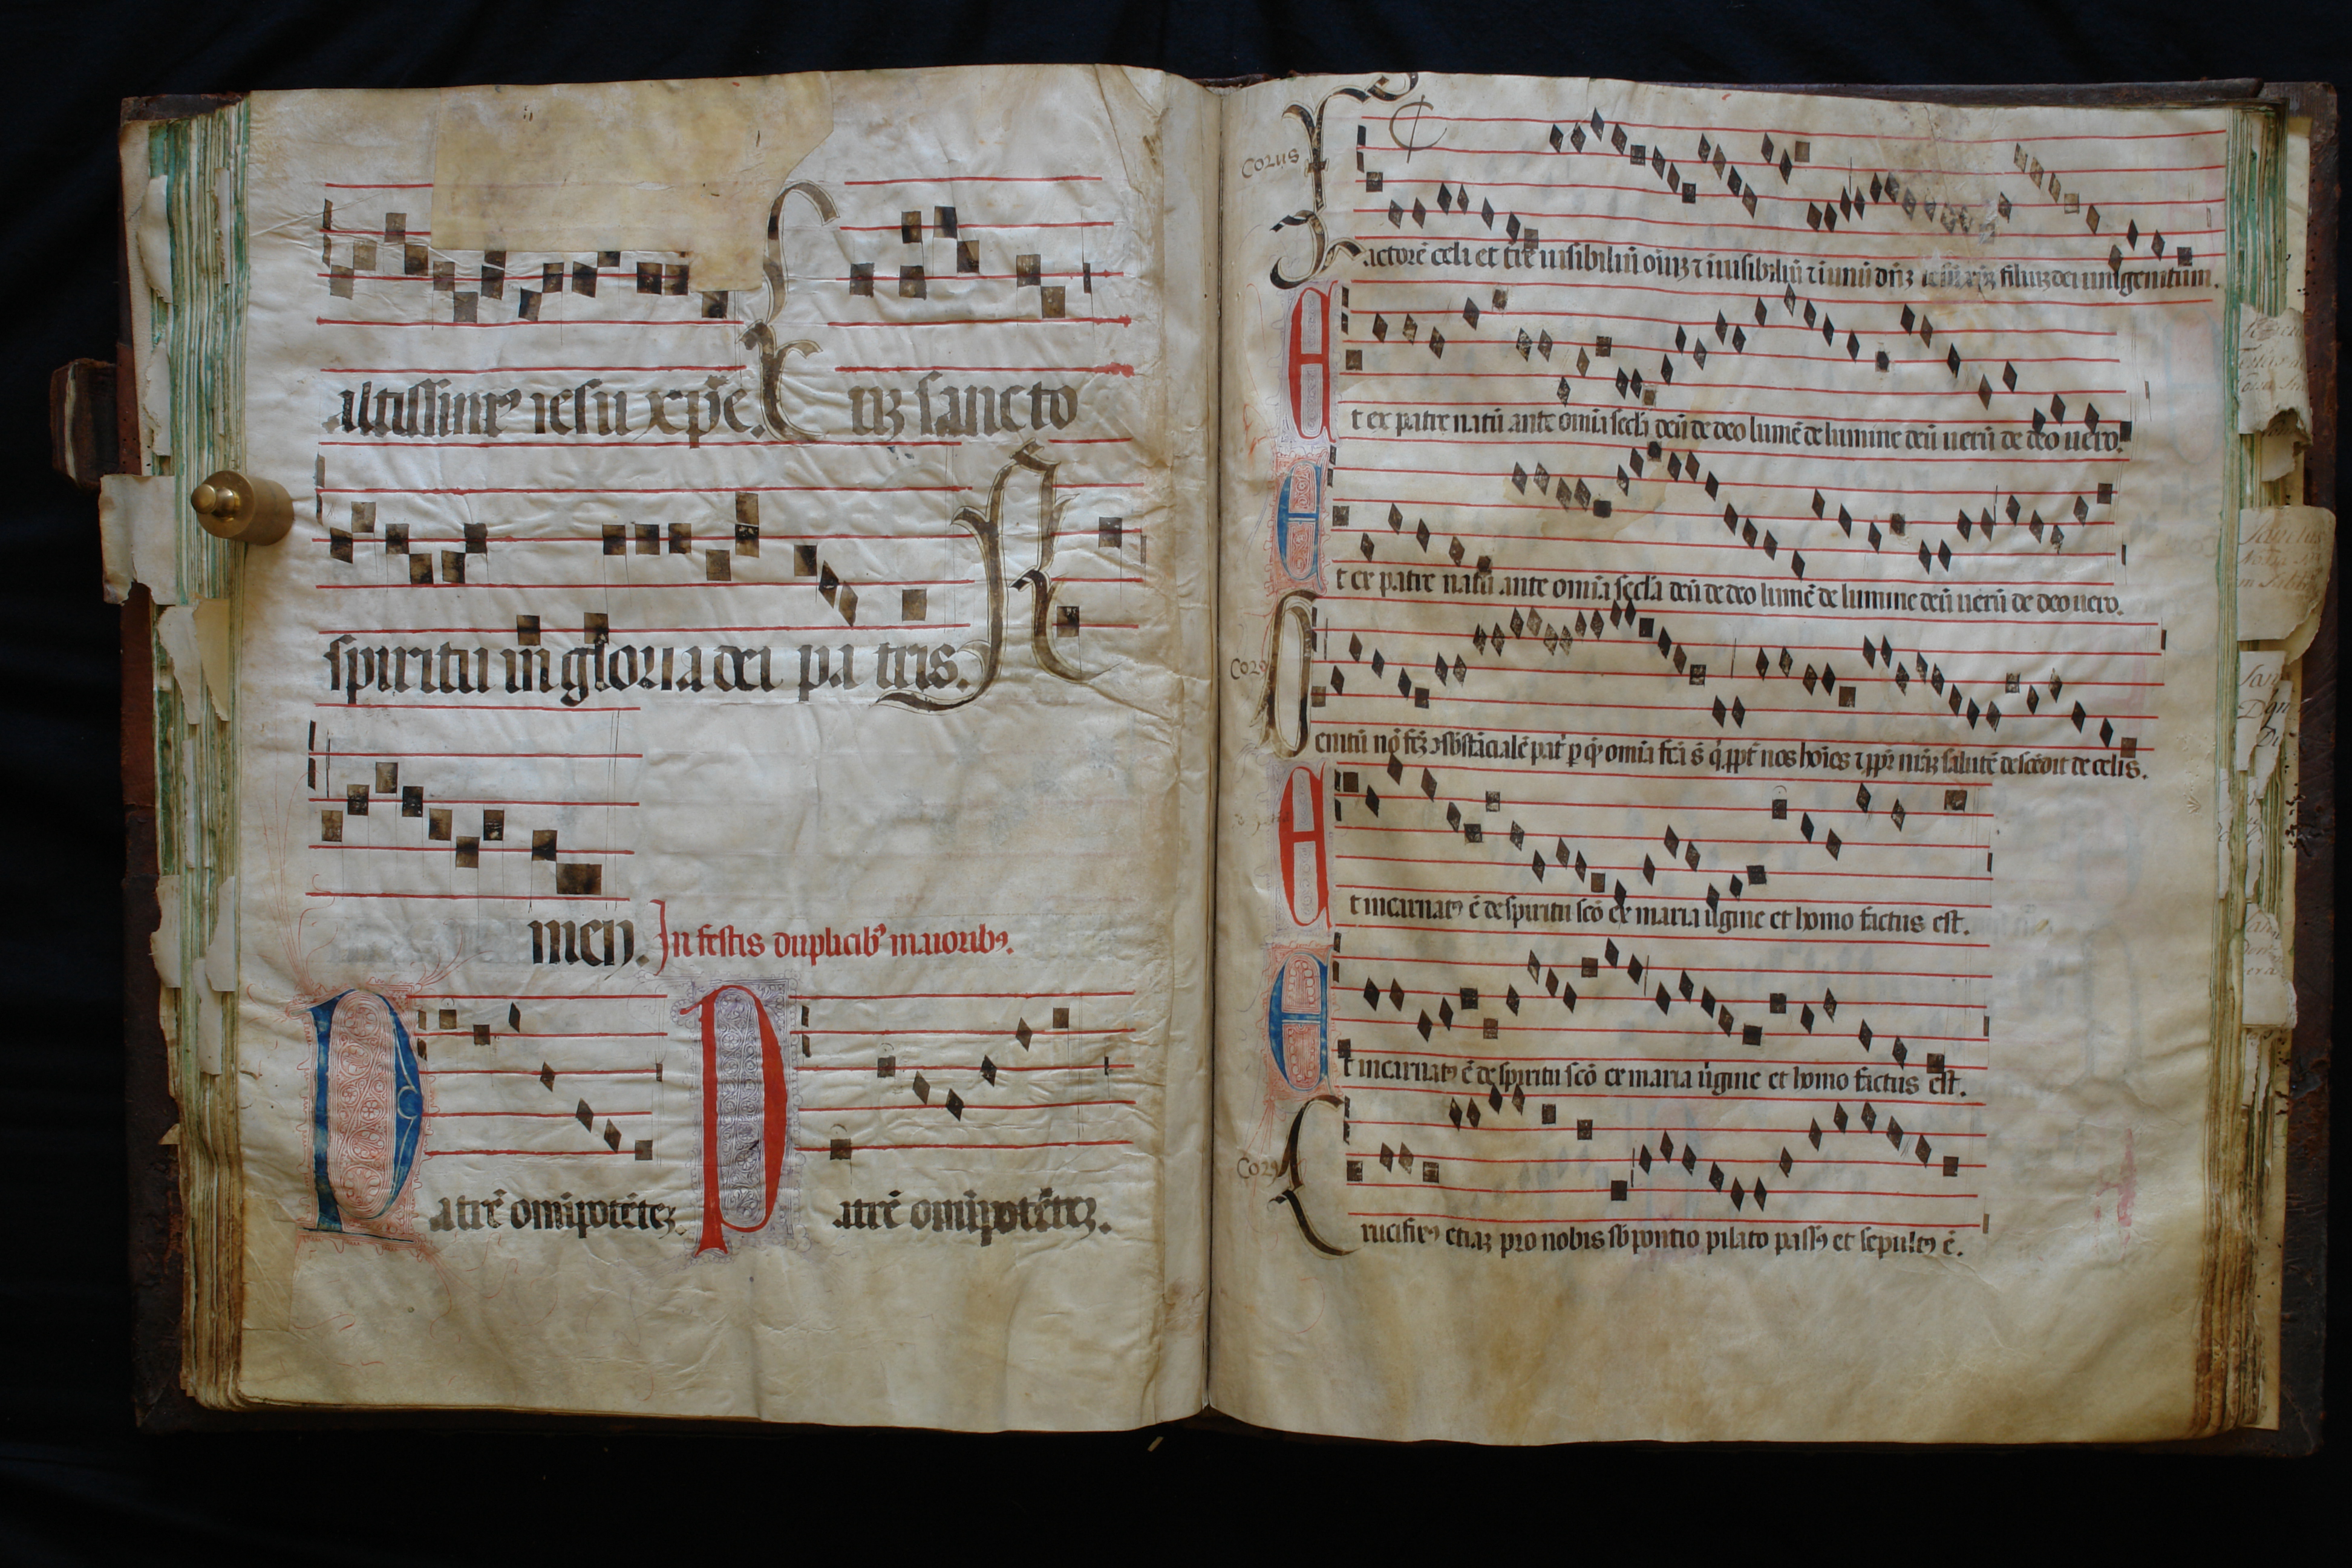 altissime iesu xp̄e. Cuȝ sancto
spiritu in gloria dei pa tris. A
men. In festis duplicibꝰ maioribꝰ.
Patrē om̄ipotēteȝ. Patrē om̄ipotēteȝ.
Corus
Factorē celi et tre uisibiliū oīuȝ ⁊ inuisibiliū ⁊ i unū dn̄ȝ iesuȝ xp̄ȝ filiuȝ dei unigenitum.
Et ex patre natū ante om̄ia secl'a deū de deo lumē de lumine deū uerū de deo uero.
Et ex patre natū ante om̄ia secl'a deū de deo lumē de lumine deū uerū de deo uero.
Corꝰ
Genitū nō
om̄ia
nos hoīes
salutē descēdit de celis.
Et incarnatꝰ ē de spiritu scō ex maria uīgine et homo factus est.
Et incarnatꝰ ē de spiritu scō ex maria uīgine et homo factus est.
Corꝰ
Crucifixꝰ etiaȝ pro nobis sb̄ pontio pilato passꝰ et sepultꝰ ē.